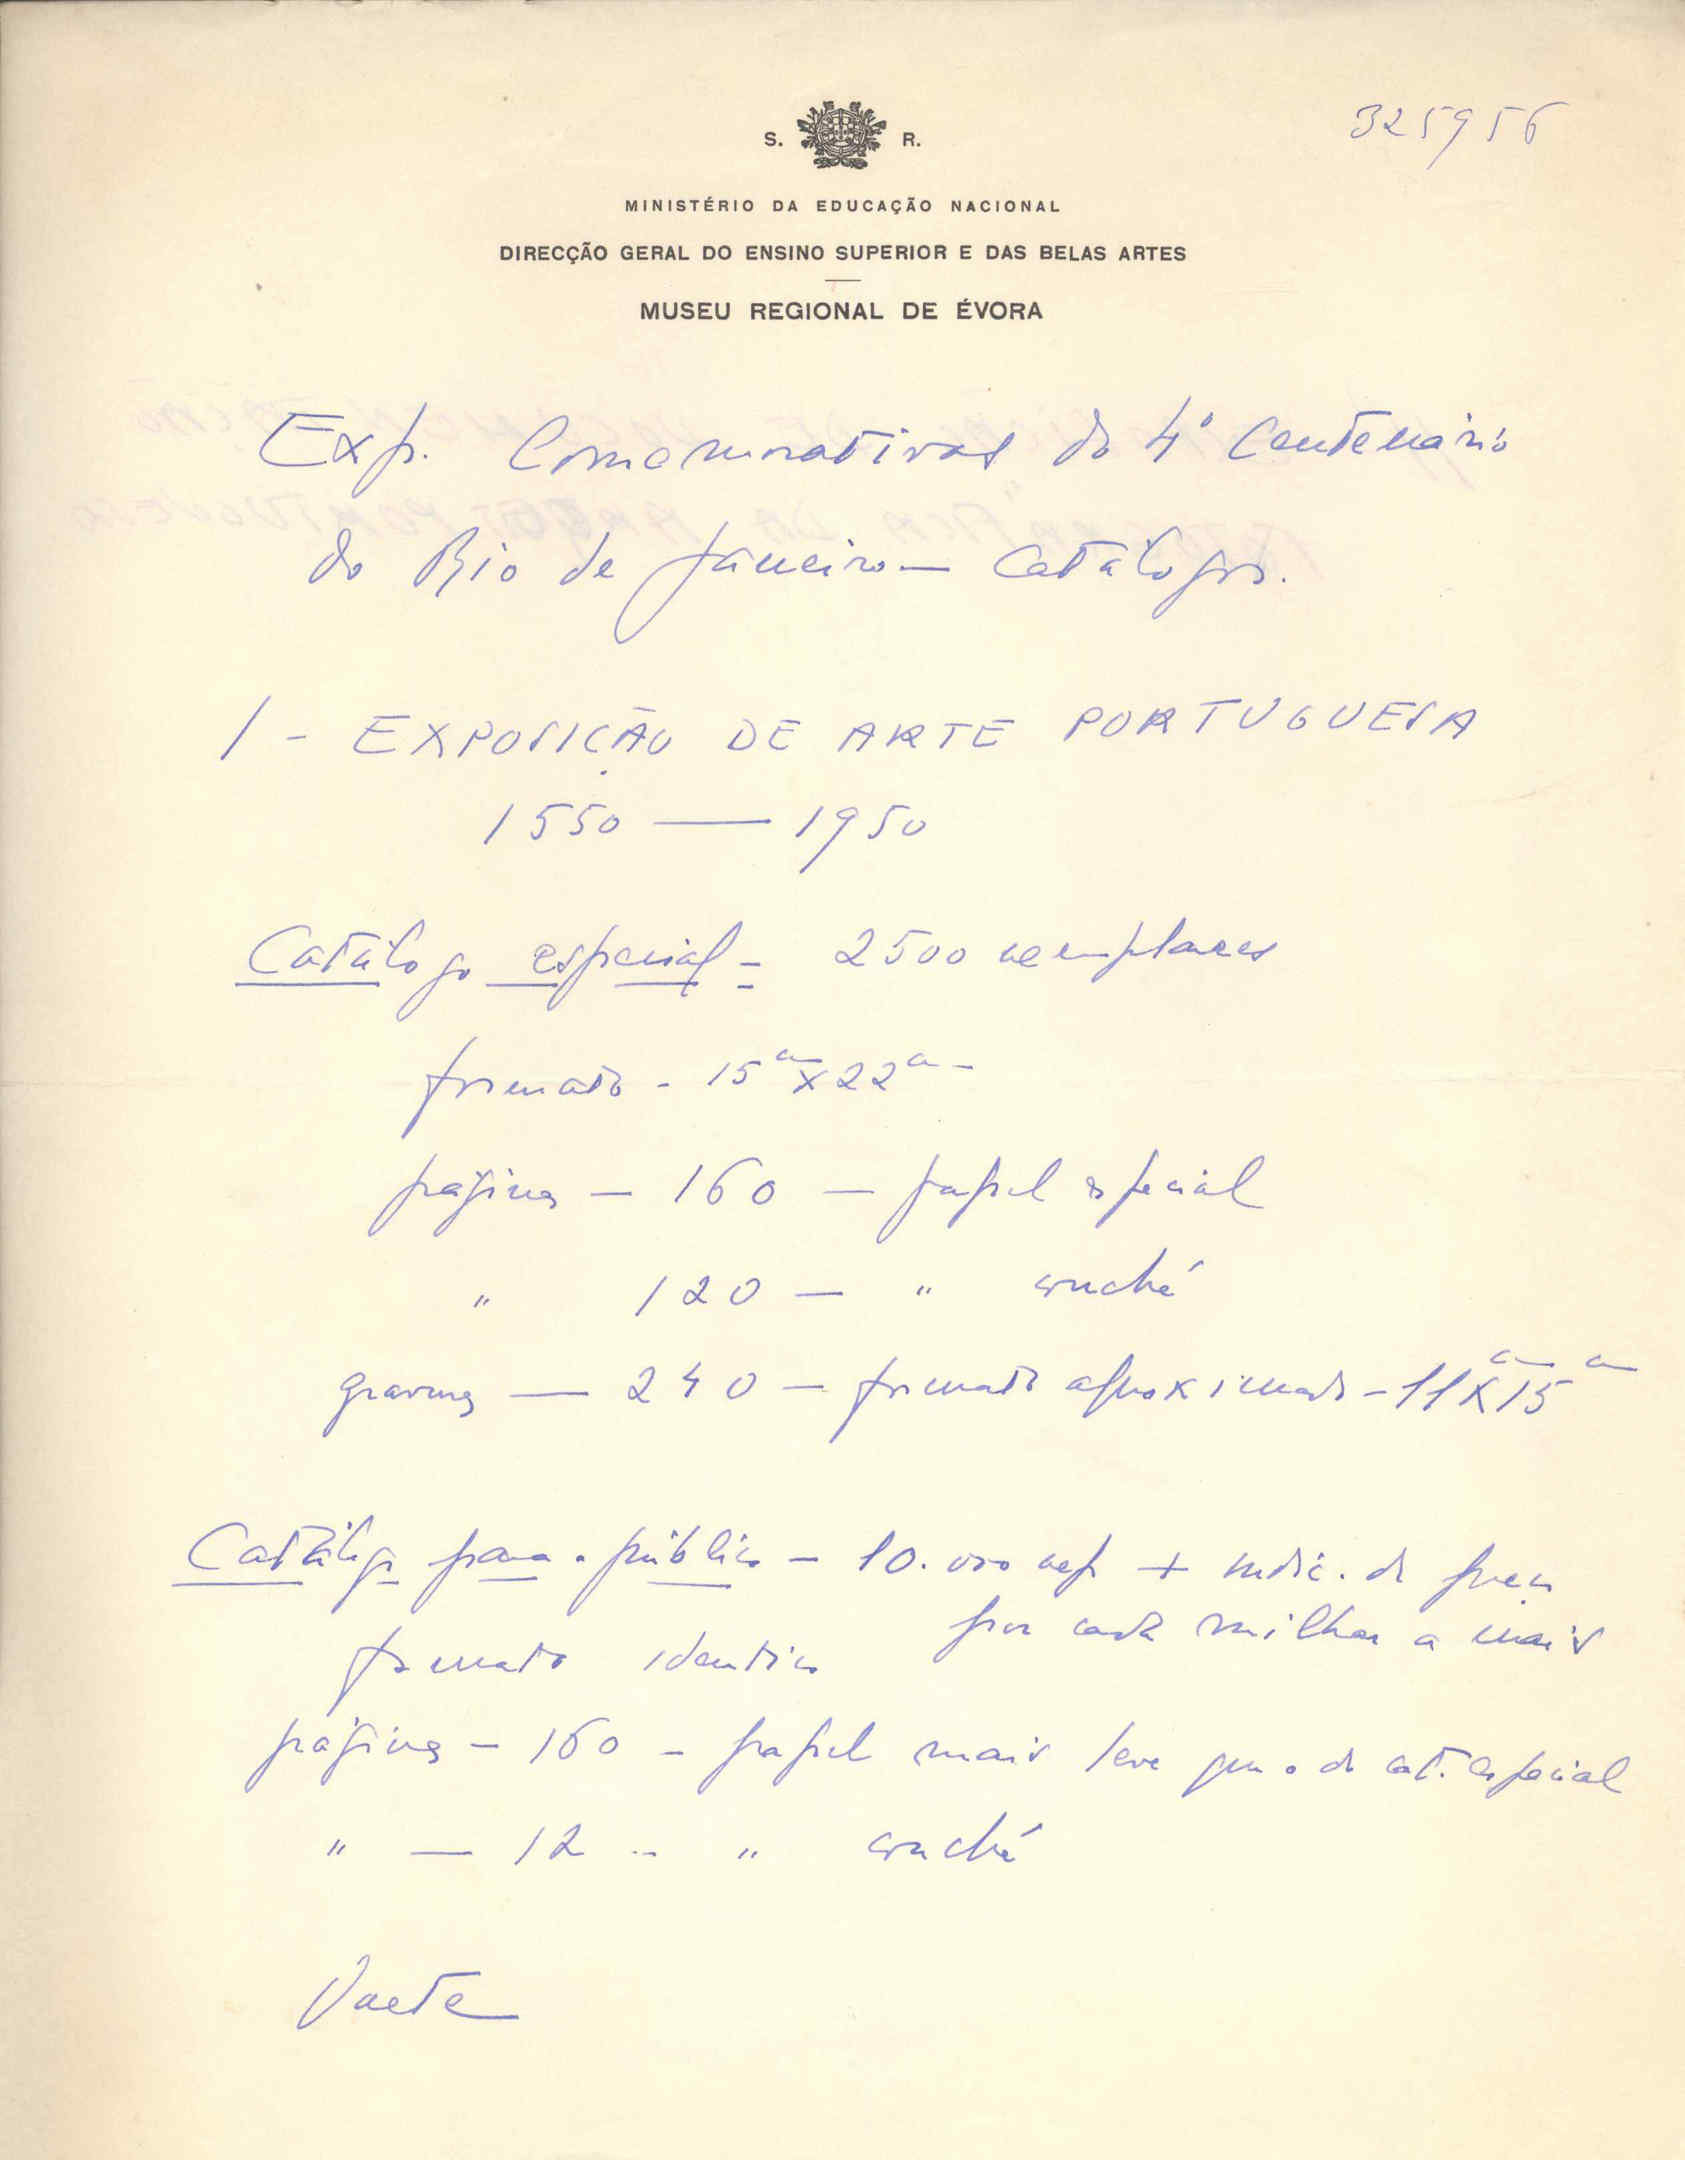 325956
S. R.
MINISTÉRIO DA EDUCAÇÃO NACIONAL
DIRECÇÃO GERAL DO ENSINO SUPERIOR E DAS BELAS ARTES
MUSEU REGIONAL DE ÉVORA
Exp. Comemorativas do 4º Centenário
do Rio de Janeiro — Catálogos.
1 - EXPOSIÇÃO DE ARTE PORTUGUESA
1550 — 1950
Catálogo especial - 2500 exemplares
formato - 15cm x 22cm -
páginas — 160 — papel especial
" 120 — " couché
gravuras — 240 — formato aproximado - 11cm x 15cm
Catálogo para o público - 10.000 exp + indic. do preço
por cada milhar a mais
formato identico
páginas - 160 - papel mais leve que o do cat. especial
" — 12 - " couché